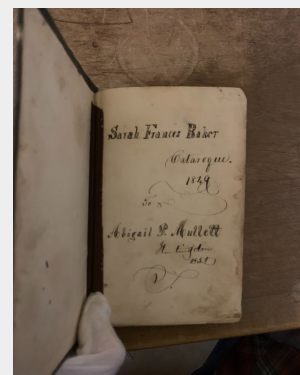 Sarah Frances Baker
Catarogue.
1849
To
Abigail P. Mullett
1851